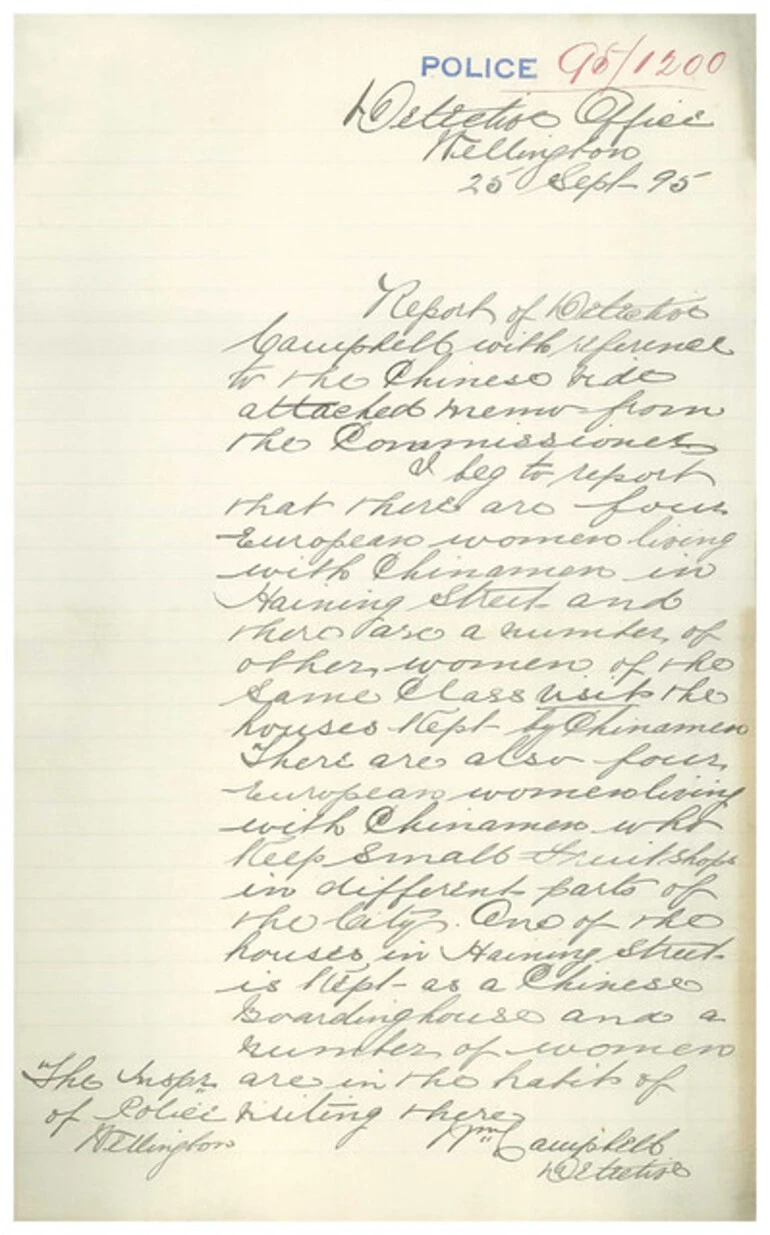 POLICE 95/1200
Detective Office
Wellington
25 Sept 95
Report of Detective
Campbell with reference
to the Chinese vide
attached memo from
the Commissioner
I beg to report
that there are four
European women living
with Chinamen in
Haining Street and
there are a number of
other women of the
same Class visit the
houses kept by Chinamen
There are also four
European women living
with Chinamen who
keep small fruit shops
in different parts of
the City. One of the
houses in Haining Street
is kept as a Chinese
Boardinghouse and a
number of women
are in the habit of
visiting there
Wm Campbell
Detective
The Inspr
of Police
Wellington